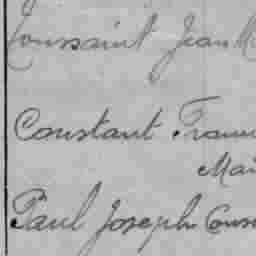 Toussaint Jean M
Constant Franc
Mar
Paul Joseph Cons